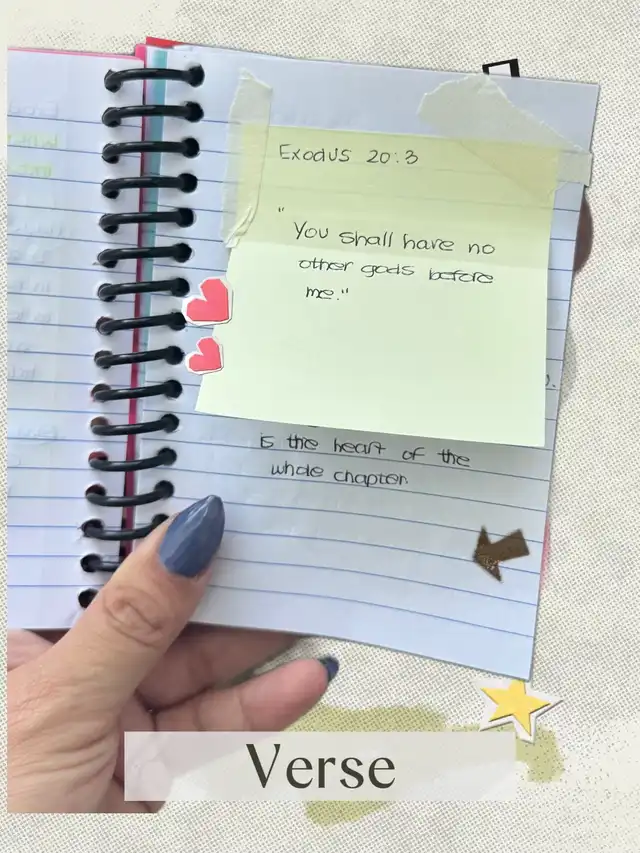 Exodus 20:3
"You shall have no
other gods before
me."
is the heart of the
whole chapter.
Verse